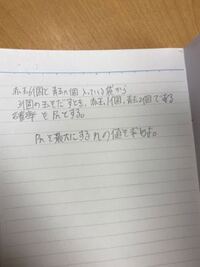 赤玉6個と青玉n個 入っている袋から
3個の玉をだすとき、赤玉1個、青玉2個である
確率をPnとする。
Pnを最大にするnの値を求めよ。